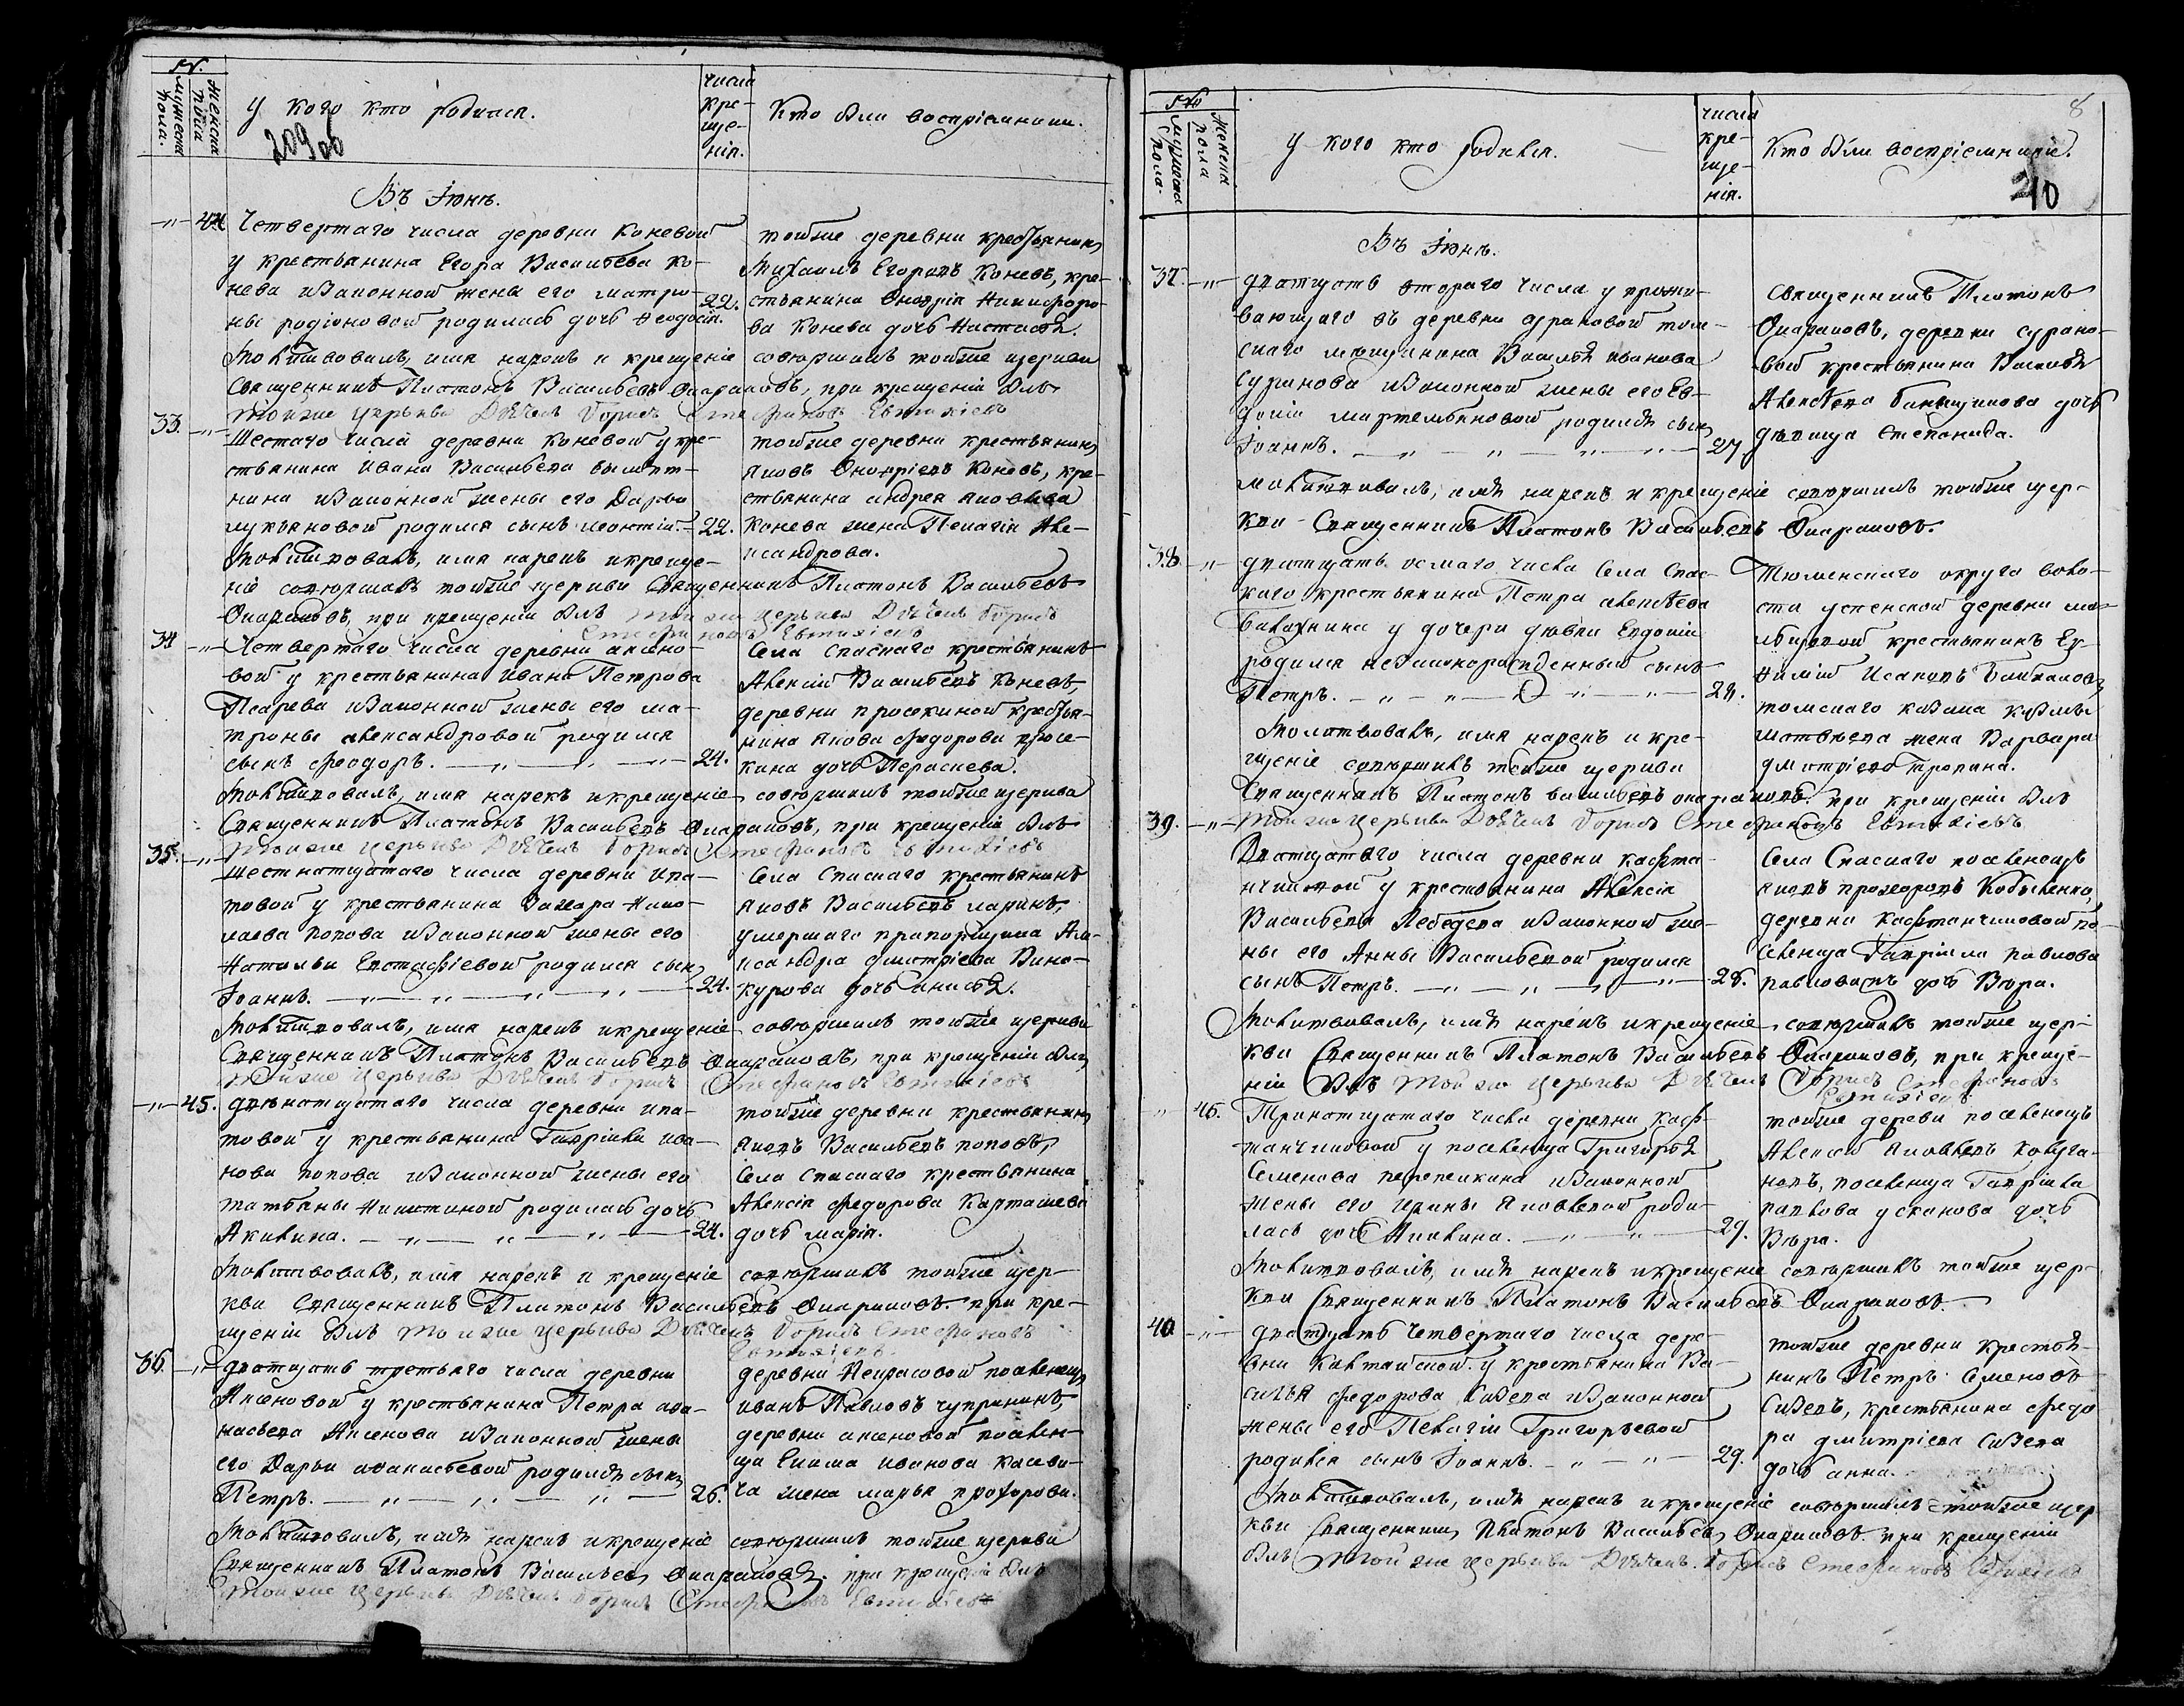 №.
мужеска пола.
женска пола
У кого кто родился.
числа кре-
ще-
нія.
Кто были воспріемники.
209 об
Въ Іюнѣ.
44 Четвертаго числа деревни Коневой
у крестьянина Егора Васильева Ко-
нева изъ законной жены его Матро-
ны Родіоновой родилась дочь Феодосія.
22.
тойже деревни крестьянинъ
Михаилъ Егоровъ Коневъ, кре-
стьянина Онофрія Никифоро-
ва Конева дочь Настасья.
Молитвовалъ, имя нарекъ и крещеніе совершилъ тойже церкви
Священникъ Платонъ Васильевъ Опараковъ, при крещеніи былъ
тойже церкви Дьячекъ Борисъ Стефановъ Евтихіевъ
33. Шестаго числа деревни Коневой у кре-
стьянина Ивана Васильева
изъ законной жены его Дарьи
Лукьяновой родился сынъ Леонтій.
22.
тойже деревни крестьянинъ
Яковъ Онофріевъ Коневъ, кре-
стьянина Андрея Яковлева
Конева жена Пелагія Але-
ксандрова.
Молитвовалъ, имя нарекъ и креще-
ніе совершилъ тойже церкви Священникъ Платонъ Васильевъ
Опараковъ, при крещеніи былъ тойже церкви Дьячекъ Борисъ
Стефановъ Евтихіевъ
34 Четвертаго числа деревни Аксено-
вой у крестьянина Ивана Петрова
Писарева изъ законной жены его Ма-
троны Александровой родился
сынъ Феодоръ.
24.
Села Спаскаго крестьянинъ
Алексій Васильевъ Коневъ,
деревни Просекиной крестья-
нина Якова Федорова Просе-
кина дочь Параскева.
Молитвовалъ, имя нарекъ и крещеніе совершилъ тойже церкви
Священникъ Платонъ Васильевъ Опараковъ, при крещеніи былъ
тойже церкви Дьячекъ Борисъ Стефановъ Евтихіевъ
35. Шестнатцатаго числа деревни Ипа-
товой у крестьянина Захара Нико-
лаева Попова изъ законной жены его
Натальи Евстафіевой родился сынъ
Іоаннъ.
24.
Села Спаскаго крестьянинъ
Яковъ Васильевъ Ларинъ,
умершаго прапорщика Але-
ксандра Дмитріева Вино-
курова дочь Анисья.
Молитвовалъ, имя нарекъ и крещеніе совершилъ тойже церкви
Священникъ Платонъ Васильевъ Опараковъ, при крещеніи былъ
тойже церкви Дьячекъ Борисъ Стефановъ Евтихіевъ
45. Двѣнатцатаго числа деревни Ипа-
товой у крестьянина Гавріила Ива-
нова Попова изъ законной жены его
Татьяны Никитиной родилась дочь
Акилина.
24.
тойже деревни крестьянинъ
Яковъ Васильевъ Поповъ,
Села Спаскаго крестьянина
Алексія Федорова Карташева
дочь Марія.
Молитвовалъ, имя нарекъ и крещеніе совершилъ тойже цер-
кви Священникъ Платонъ Васильевъ Опараковъ. при кре-
щеніи былъ тойже церкви Дьячекъ Борисъ Стефановъ
Евтихіевъ.
36. Дватцать третьяго числа деревни
Аксеновой у крестьянина Петра Афа-
насьева Аксенова изъ законной жены
его Дарьи Афанасьевой родился сынъ
Петръ.
26.
деревни Некрасовой поселенецъ
Иванъ Павловъ Чупринъ,
деревни Аксеновой поселен-
ца Екима Иванова
жена Марья Прохорова.
Молитвовалъ, имя нарекъ и крещеніе совершилъ тойже церкви
Священникъ Платонъ Васильевъ Опараковъ. при крещеніи былъ
тойже церкви Дьячекъ Борисъ Стефановъ Евтихіевъ
8
№
мужеска пола.
женска пола
У кого кто родился.
числа кре-
ще-
нія.
Кто были воспріемники.
210
Въ Іюнѣ.
37. Дватцать втораго числа у прожи-
вающаго въ деревни Сурановой том-
скаго мѣщанина Василья Иванова
Суранова изъ законной жены его Ев-
докіи Мартемьяновой родился сынъ
Іоаннъ.
27.
Священникъ Платонъ
Опараковъ, деревни Сурано-
вой крестьянина Василья
Алексѣева дочь
дѣвица Степанида.
Молитвовалъ, имя нарекъ и крещеніе совершилъ тойже цер-
кви Священникъ Платонъ Васильевъ Опараковъ.
38. Дватцать осмаго числа Села Спас-
каго крестьянина Петра Алексѣева
у дочери дѣвки Евдокіи
родился незаконорожденный сынъ
Петръ.
28.
Тюменскаго округа воло-
сти Успенской деревни
крестьянинъ Ев-
фимій Исаковъ
томскаго казака Козьмы
Матвѣева жена Варвара
Дмитріева
Молитвовалъ, имя нарекъ и кре-
щеніе совершилъ тойже церкви
Священникъ Платонъ Васильевъ Опараковъ. при крещеніи былъ
тойже церкви Дьячекъ Борисъ Стефановъ Евтихіевъ
39. Дватцатаго числа деревни Кафта-
нчиковой у крестьянина Алексія
Васильева Лебедева изъ законной же-
ны его Анны Васильевой родился
сынъ Петръ.
28.
Села Спаскаго поселенецъ
Яковъ Прохоровъ Кобыленко,
деревни Кафтанчиковой по-
селенца Гавріила Павлова
дочь Вѣра.
Молитвовалъ, имя нарекъ и крещеніе совершилъ тойже цер-
кви Священникъ Платонъ Васильевъ Опараковъ, при креще-
ніи былъ тойже церкви Дьячекъ Борисъ Стефановъ
Евтихіевъ
46. Тринатцатаго числа деревни Каф-
танчиковой у поселенца Григорья
Семенова Перепелкина изъ законной
жены его Ирины Яковлевой роди-
лась дочь Акилина.
29.
тойже деревни поселенецъ
Алексѣй Яковлевъ Колуга-
новъ, поселенца Гавріила
Павлова Усканова дочь
Вѣра.
Молитвовалъ, имя нарекъ и крещеніе совершилъ тойже цер-
кви Священникъ Платонъ Васильевъ Опараковъ.
40. Дватцать четвертаго числа дере-
вни Калтайской у крестьянина Ва-
силья Федорова Сизева изъ законной
жены его Пелагіи Григорьевой
родился сынъ Іоаннъ.
29.
тойже деревни крестья-
нинъ Петръ Семеновъ
Сизевъ, крестьянина Федо
ра Дмитріева Сизева
дочь Анна.
Молитвовалъ, имя нарекъ и крещеніе совершилъ тойже цер
кви Священникъ Платонъ Васильевъ Опараковъ. при крещеніи
былъ тойже церкви Дьячекъ Борисъ Стефановъ Евтихіевъ